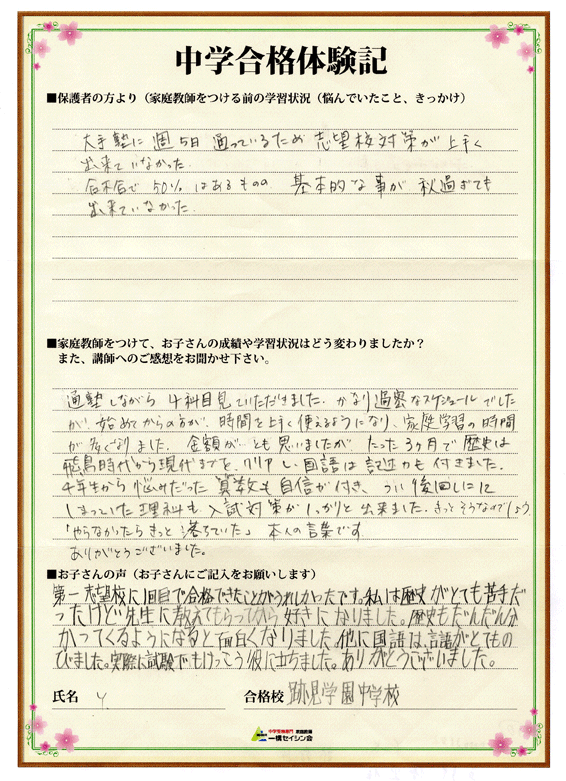 中学合格体験記
■保護者の方より（家庭教師をつける前の学習状況（悩んでいたこと、きっかけ）
大手塾に週5日通っているため志望校対策が上手く
出来ていなかった。
合不合で50%はあるものの 基本的な事が秋過ぎても
出来ていなかった。
■家庭教師をつけて、お子さんの成績や学習状況はどう変わりましたか？
また、講師へのご感想をお聞かせ下さい。
通塾しながら4科目見ていただきました。かなり過密なスケジュールでした
が、始めてからの方が、時間を上手く使えるようになり、家庭学習の時間
が多くなりました。金額が、とも思いましたが、たった3ヶ月で歴史は
飛鳥時代から現代までを、クリアし、国語は記述力も付きました。
4年生から悩みだった算数も自信が付き、つい後回しに
しまっていた理科も入試対策がしっかりと出来ました。きっとそうなのでしょう。
「やらなかったらきっと落ちていた」本人の言葉です。
ありがとうございました。
■お子さんの声（お子さんにご記入をお願いします）
第一志望校に1回目で合格できたことがうれしかったです。私は歴史がとても苦手だ
ったけど先生に教えてもらってから好きになりました。歴史もだんだん分
かってくるようになると面白くなりました。他に国語は、言語がとてもの
びました。実際に試験でもけっこう役に立ちました。ありがとうございました。
氏名 Y 合格校 跡見学園中学校
中学受験専門 家庭教師
一橋セイシン会